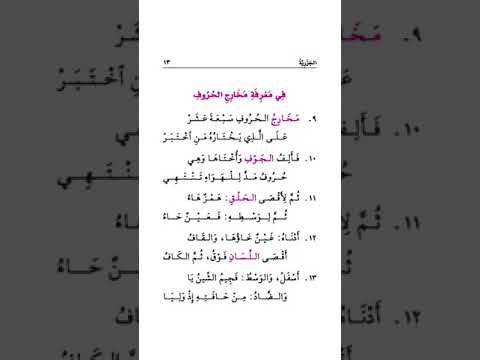 الجزرية ١٣
في معرفة مخارج الحروف
٩. مَخَارِجُ الحُرُوفِ سَبْعَةَ عَشَرْ
عَلَى الَّذِي يَخْتَارُهُ مَنِ اخْتَبَرْ
١٠. فَأَلِفُ الجَوْفِ وَأُخْتَاهَا وَهِي
حُرُوفُ مَدٍّ لِلْهَوَاءِ تَنْتَهِي
١١. ثُمَّ لِأَقْصَى الحَلْقِ: هَمْزٌ هَاءُ
ثُمَّ لِوَسْطِهِ: فَعَيْنٌ حَاءُ
١٢. أَدْنَاهُ: غَيْنٌ خَاؤُهَا، وَالقَافُ
أَقْصَى اللِّسَانِ فَوْقُ، ثُمَّ الكَافُ
١٣. أَسْفَلُ، وَالوَسْطُ: فَجِيمُ الشِّينُ يَا
وَالضَّادُ: مِنْ حَافَتِهِ إِذْ وَلِيَا